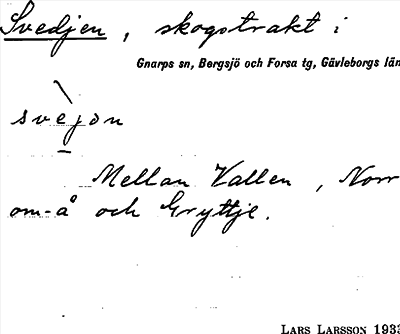 Svedjen, skogstrakt i
Gnarps sn, Bergsjö och Forsa tg, Gävleborgs län
svejon
Mellan Vallen, Norr
om-å och Gryttje.
LARS LARSSON 1933